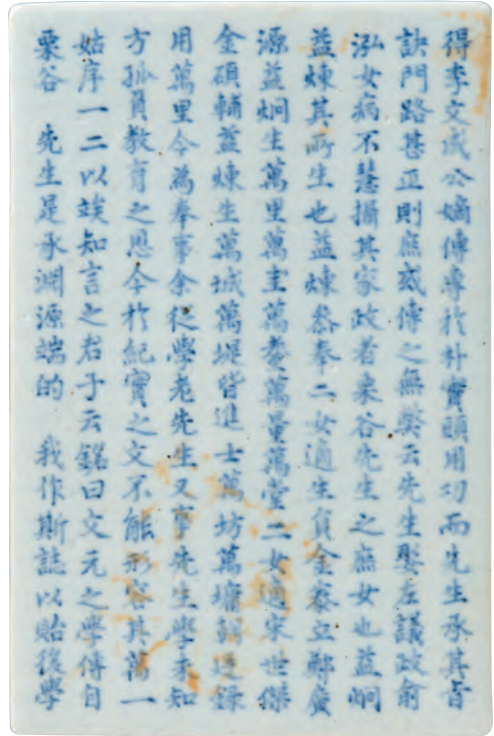 得李文成公嫡傳專於朴實頭用功而先生承其旨
訣門路甚正則庶或傳之無弊云先生娶左議政俞
泓女病不慧攝其家政者栗谷先生之庶女也益炯
益煉其所生也益煉叅奉二女適生員金泰立鄭廣
源益炯生萬里萬圭萬耋萬量萬堂二女適宋世傑
金碩輔益煉生萬城萬堤皆進士萬坊萬墉朝廷錄
用萬里今為奉事余從學老先生又事先生學未知
方孤負敎育之恩今於紀實之文不能形容其萬一
姑序一二以竢知言之君子云銘曰文元之學傳自
栗谷 先生是承淵源端的 我作斯誌以貽後學